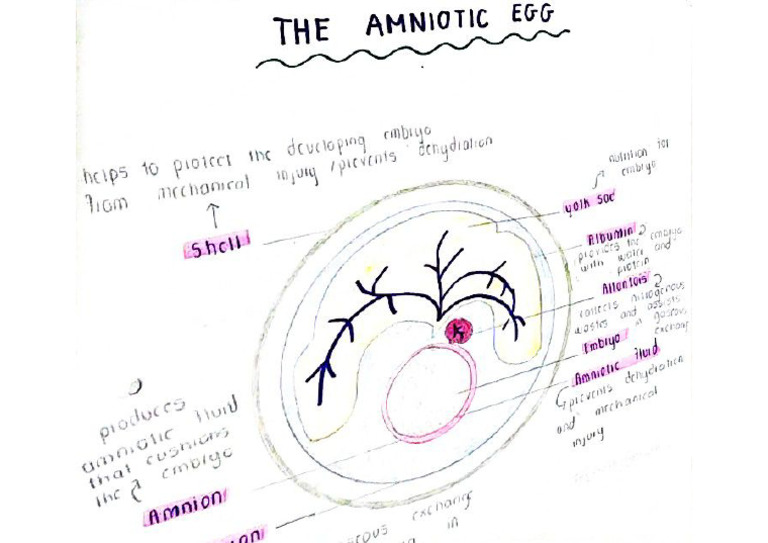 THE AMNIOTIC EGG
helps to protect the developing embryo
from mechanical injury / prevents dehydration
Shell
nutrition for
embryo
yolk sac
Albumin
provides the embryo
with water and
protein
Allantois
collects nitrogenous
wastes and assists
in gaseous
exchange
Embryo
Amniotic fluid
prevents dehydration
and mechanical
injury
produces
amniotic fluid
that cushions
the embryo
Amnion
exchange
in